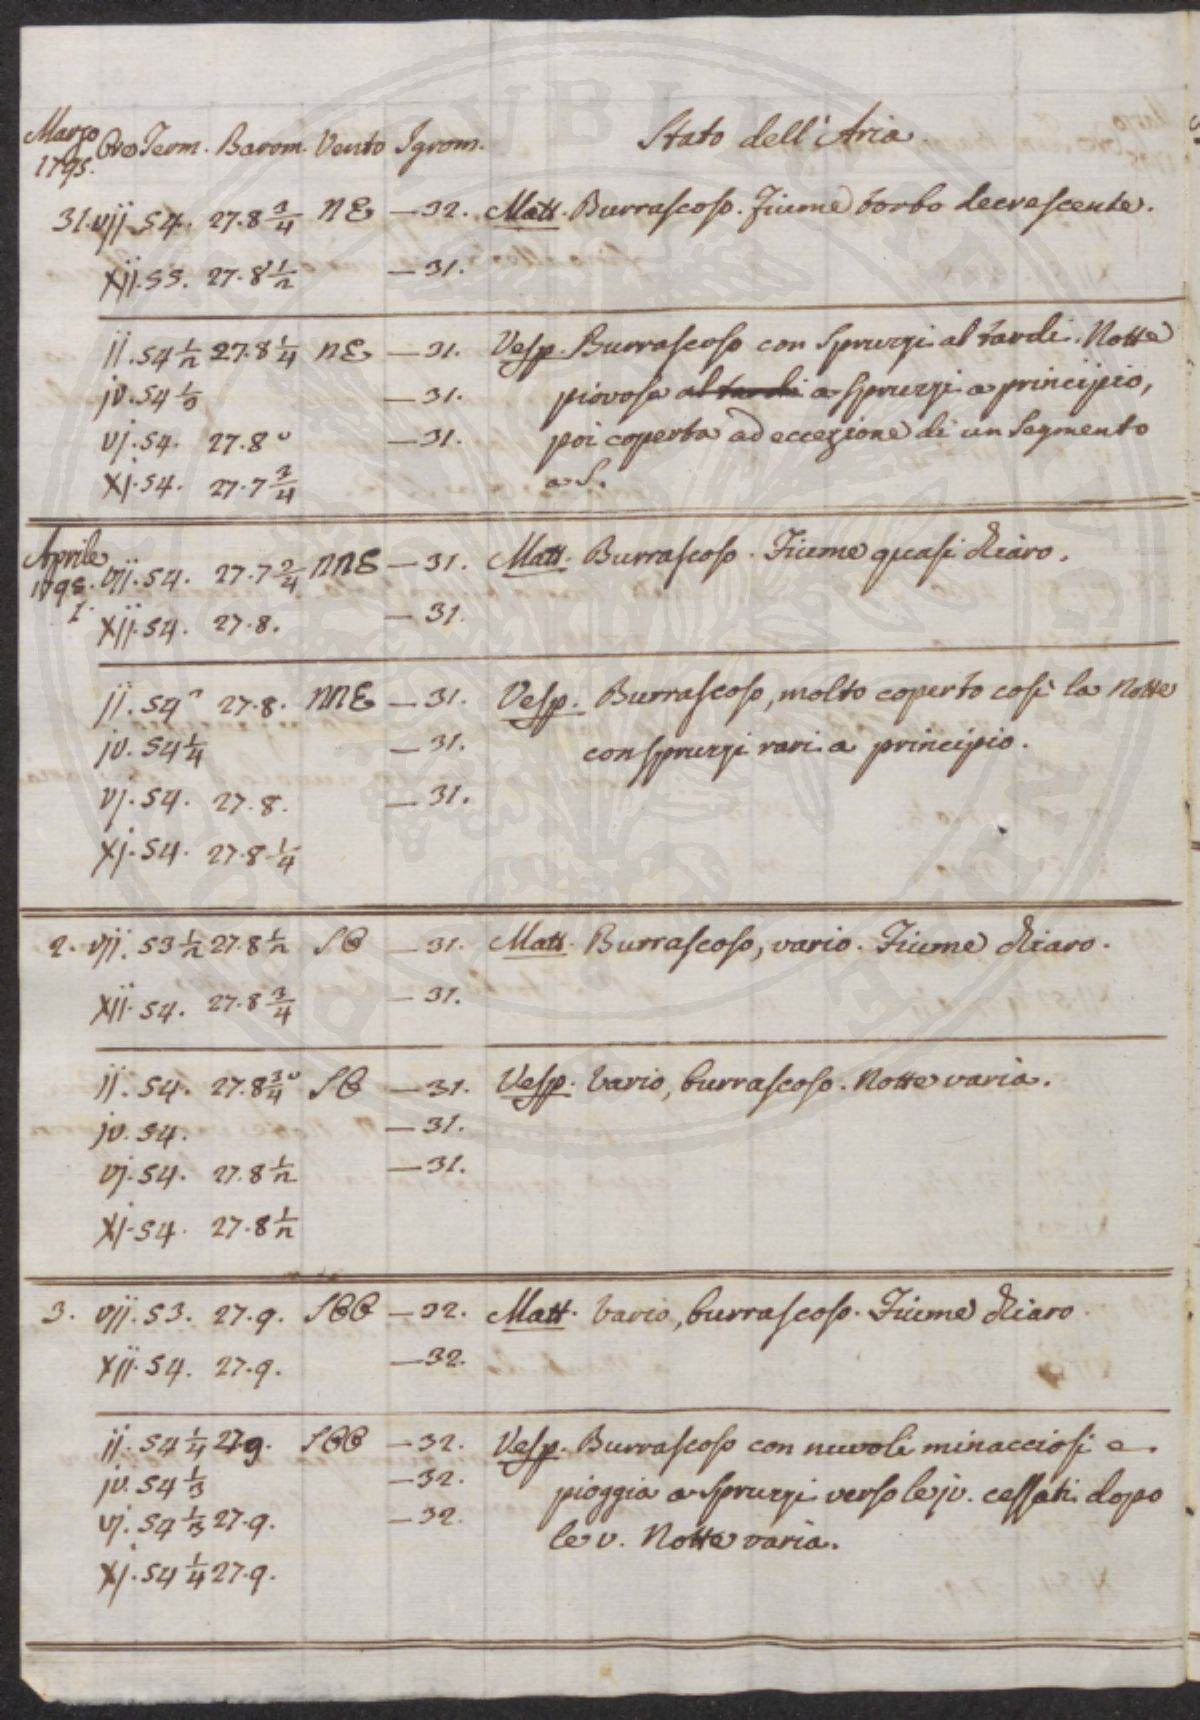 Marzo 1795. Ore Term. Barom. Vento Igrom. Stato dell'Aria
31. vij. 54. 27.8 3/4 NE — 32. Matt. Burrascoso. Fiume torbo decrescente.
xij. 55. 27.8 1/2 — 31.
ij. 54 1/2 27.8 1/4 NE — 31. Vesp. Burrascoso con spruzzi al tardi. Notte
jv. 54 1/3 — 31. piovosa al tardi a spruzzi a principio,
vj. 54. 27.8 — 31. poi coperta ad eccezione di un segmento
xj. 54. 27.7 3/4 a S.
Aprile 1795. 1. vij. 54. 27.7 3/4 NNE — 31. Matt. Burrascoso. Fiume quasi chiaro.
xij. 54. 27.8. — 31.
ij. 54 27.8. NNE — 31. Vesp. Burrascoso, molto coperto così la Notte
jv. 54 1/4 — 31. con spruzzi rari a principio.
vj. 54. 27.8. — 31.
xj. 54. 27.8 1/4
2. vij. 53 1/2 27.8 1/2 SO — 31. Matt. Burrascoso, vario. Fiume chiaro.
xij. 54. 27.8 3/4 — 31.
ij. 54. 27.8 3/4 SO — 31. Vesp. Vario, burrascoso. Notte varia.
jv. 54. — 31.
vj. 54. 27.8 1/2 — 31.
xj. 54. 27.8 1/2
3. vij. 53. 27.9. SOO — 32. Matt. Vario, burrascoso. Fiume chiaro.
xij. 54. 27.9. — 32.
ij. 54 1/4 27.9. SOO — 32. Vesp. Burrascoso con nuvoli minacciosi e
jv. 54 1/3 — 32. pioggia a spruzzi verso le jv. cessati dopo
vj. 54 1/3 27.9. — 32. le v. Notte varia.
xj. 54 1/4 27.9.